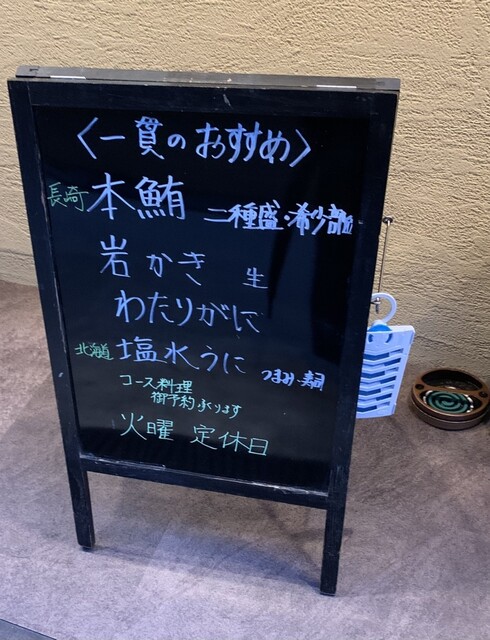 〈一貫のおすすめ〉
長崎 本鮪 二種盛・希少部位
岩かき 生
わたりがに
北海道 塩水うに つまみ・寿司
コース料理
御予約承ります
火曜 定休日